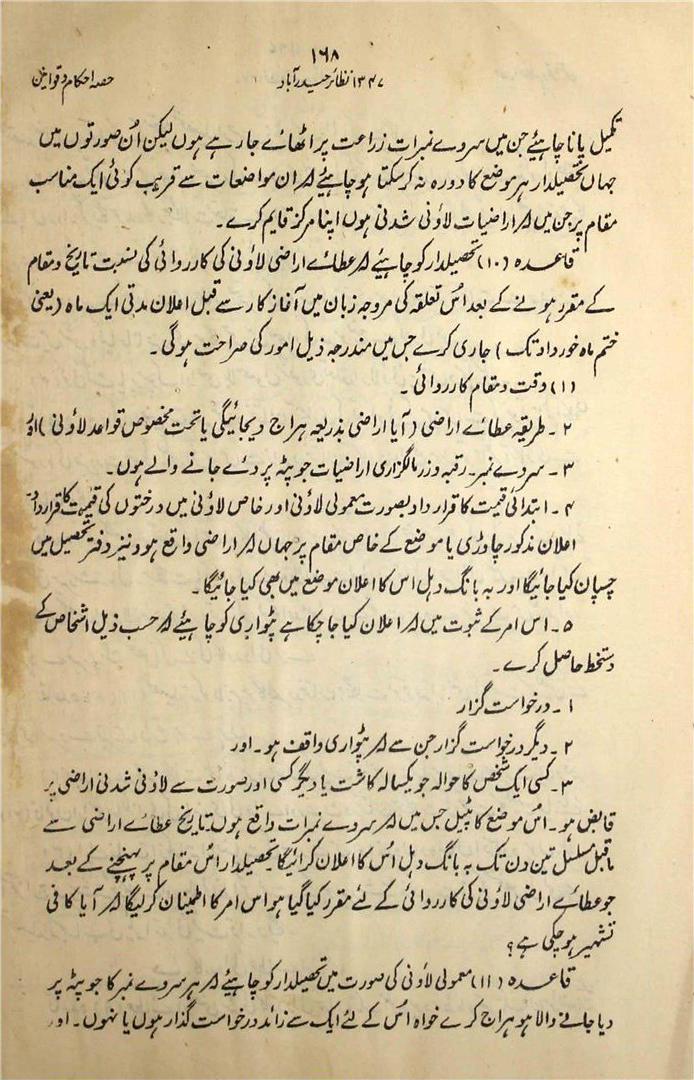 ۱۶۸
۱۳۴۷ نظائر حیدرآباد
حصہ احکام و قوانین
تکمیل پانا چاہیئے جن میں سروے نمبرات زراعت پر اٹھائے جا رہے ہوں لیکن اُن صورتوں میں
جہاں تحصیلدار ہر موضع کا دورہ نہ کر سکتا ہو چاہیئے کہ ان مواضعات سے قریب کوئی ایک مناسب
مقام پر جن میں کہ اراضیات لاؤنی شدنی ہوں اپنا مرکز قایم کرے۔
قاعدہ (۱۰) تحصیلدار کو چاہیئے کہ عطائے اراضی لاؤنی کی کارروائی کی نسبت تاریخ و مقام
کے مقرر ہونے کے بعد اُس تعلقہ کی مروجہ زبان میں آغاز کار سے قبل اعلان مدتی ایک ماہ (یعنی
ختم ماہ خورداد تک) جاری کرے جس میں مندرجہ ذیل امور کی صراحت ہوگی۔
(۱) وقت و مقام کارروائی۔
۲ ۔ طریقہ عطائے اراضی (آیا اراضی بذریعہ ہراج دیجائیگی یا تحت مخصوص قواعد لاؤنی) اور
۳ ۔ سروے نمبر۔ رقبہ و زر مالگزاری اراضیات جو پٹہ پر دئے جانے والے ہوں۔
۴ ۔ ابتدائی قیمت کا قرار داد بصورت معمولی لاؤنی اور خاص لاؤنی میں درختوں کی قیمت کا قرارداد۔
اعلان مذکور چاوڑی یا موضع کے خاص مقام پر جہاں کہ اراضی واقع ہو و نیز دفتر تحصیل میں
چسپان کیا جائیگا اور بہ بانگ دہل اس کا اعلان موضع میں بھی کیا جائیگا۔
۵ ۔ اس امر کے ثبوت میں کہ اعلان کیا جا چکا ہے پٹواری کو چاہیئے کہ حسب ذیل اشخاص کے
دستخط حاصل کرے۔
۱ ۔ درخواست گزار
۲ ۔ دیگر درخواست گزار جن سے کہ پٹواری واقف ہو۔ اور
۳ ۔ کسی ایک شخص کا حوالہ جو یکسالہ کاشت یا دیگر کسی اور صورت سے لاؤنی شدنی اراضی پر
قابض ہو۔ اُس موضع کا پٹیل جس میں کہ سروے نمبرات واقع ہوں تاریخ عطائے اراضی سے
ماقبل مسلسل تین دن تک بہ بانگ دہل اُس کا اعلان کرائیگا تحصیلدار اس مقام پر پہنچنے کے بعد
جو عطائے اراضی لاؤنی کی کارروائی کے لئے مقرر کیا گیا ہو اس امر کا اطمینان کرلیگا کہ آیا کافی
تشہیر ہو چکی ہے؟
قاعدہ (۱۱) معمولی لاؤنی کی صورت میں تحصیلدار کو چاہیئے کہ ہر سروے نمبر کا جو پٹہ پر
دیا جانے والا ہو ہراج کرے خواہ اُس کے لئے ایک سے زائد درخواست گذار ہوں یا نہوں۔ اور